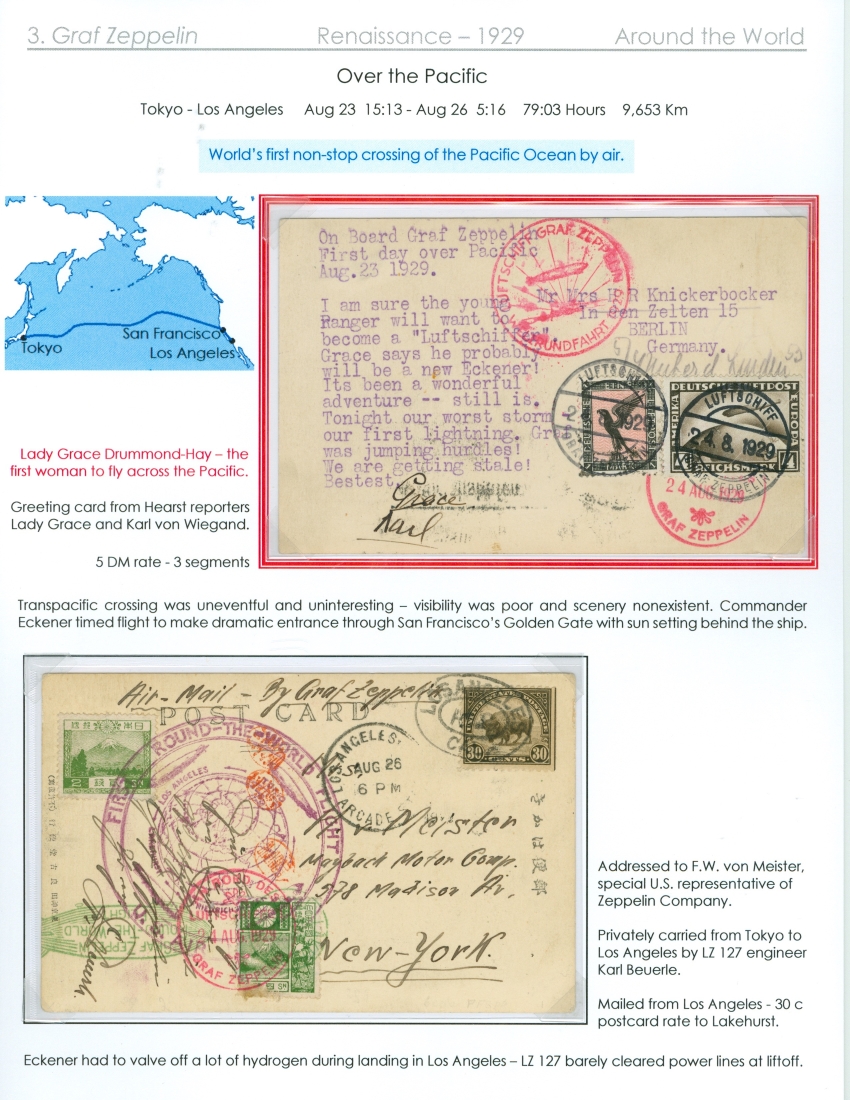 3. Graf Zeppelin Renaissance – 1929 Around the World
Over the Pacific
Tokyo - Los Angeles Aug 23 15:13 - Aug 26 5:16 79:03 Hours 9,653 Km
World's first non-stop crossing of the Pacific Ocean by air.
Tokyo
San Francisco
Los Angeles
Lady Grace Drummond-Hay – the
first woman to fly across the Pacific.
Greeting card from Hearst reporters
Lady Grace and Karl von Wiegand.
5 DM rate - 3 segments
On Board Graf Zeppelin
First day over Pacific
Aug.23 1929.
I am sure the young
Ranger will want to
become a "Luftschiffer".
Grace says he probably
will be a new Eckener!
Its been a wonderful
adventure -- still is.
Tonight our worst storm
our first lightning.
was jumping hurdles!
We are getting stale!
Bestest.
Grace
Karl
Mr Mrs H R Knickerbocker
In den Zelten 15
BERLIN
Germany.
LUFTSCHIFF GRAF ZEPPELIN
RUNDFAHRT
LUFTSCHIFF
1929
DEUTSCHE LUFTPOST
AMERIKA
EUROPA
4 REICHSMARK 4
LUFTSCHIFF
24.8.1929
GRAF ZEPPELIN
24 AUG 1929
GRAF ZEPPELIN
Transpacific crossing was uneventful and uninteresting – visibility was poor and scenery nonexistent. Commander
Eckener timed flight to make dramatic entrance through San Francisco's Golden Gate with sun setting behind the ship.
Air-Mail - By Graf Zeppelin
POST CARD
FIRST ROUND-THE-WORLD FLIGHT
LOS ANGELES
LOS ANGELES,
AUG 26
6 PM
ARCADE
LOS ANGELES
UNITED STATES POSTAGE
30 CENTS 30
v. Meister
Maybach Motor Comp.
578 Madison Av.
New-York.
きかは便郵
LUFTSCHIFF
24 AUG 1929
GRAF ZEPPELIN
Addressed to F.W. von Meister,
special U.S. representative of
Zeppelin Company.
Privately carried from Tokyo to
Los Angeles by LZ 127 engineer
Karl Beuerle.
Mailed from Los Angeles - 30 c
postcard rate to Lakehurst.
Eckener had to valve off a lot of hydrogen during landing in Los Angeles – LZ 127 barely cleared power lines at liftoff.